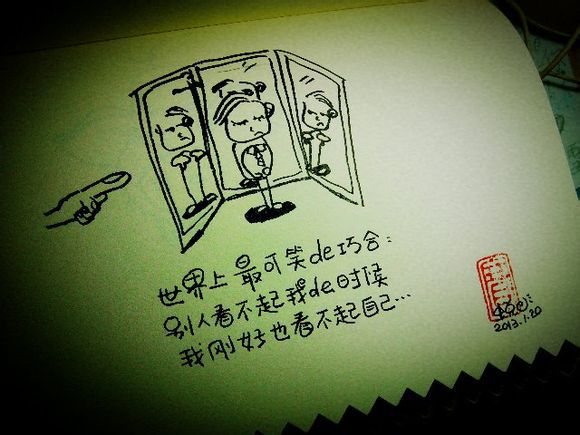 世界上最可笑de巧合:
别人看不起我de时候
我刚好也看不起自己...
2013.1.20